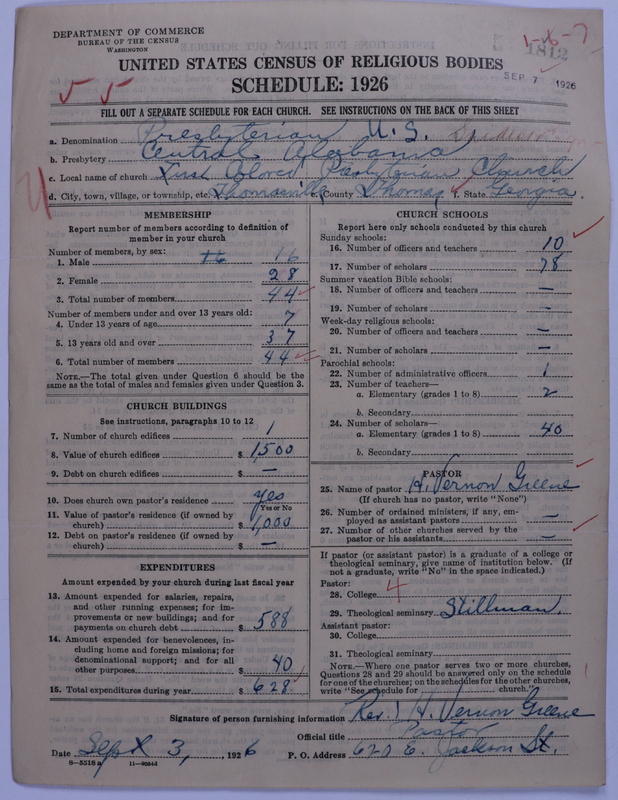 DEPARTMENT OF COMMERCE
BUREAU OF THE CENSUS
WASHINGTON
1812
SEP 7 1926
UNITED STATES CENSUS OF RELIGIOUS BODIES
SCHEDULE: 1926
FILL OUT A SEPARATE SCHEDULE FOR EACH CHURCH. SEE INSTRUCTIONS ON THE BACK OF THIS SHEET
a. Denomination Presbyterian U.S.
b. Presbytery Central Alabama
c. Local name of church First Colored Presbyterian Church
d. City, town, village, or township, etc. Thomasville e. County Thomas f. State Georgia.
MEMBERSHIP
Report number of members according to definition of
member in your church
Number of members, by sex:
1. Male 16 16
2. Female 28
3. Total number of members 44
Number of members under and over 13 years old:
4. Under 13 years of age 7
5. 13 years old and over 37
6. Total number of members 44
NOTE.—The total given under Question 6 should be
same as the total of males and females given under Question 3.
CHURCH BUILDINGS
See instructions, paragraphs 10 to 12
7. Number of church edifices 1
8. Value of church edifices $ 1,500
9. Debt on church edifices $ —
10. Does church own pastor's residence yes
Yes or No
11. Value of pastor's residence (if owned by
church) $ 1,000
12. Debt on pastor's residence (if owned by
church) $ —
EXPENDITURES
Amount expended by your church during last fiscal year
13. Amount expended for salaries, repairs,
and other running expenses; for im-
provements or new buildings; and for
payments on church debt $ 588
14. Amount expended for benevolences, in-
cluding home and foreign missions; for
denominational support; and for all
other purposes $ 40
15. Total expenditures during year $ 628
CHURCH SCHOOLS
Report here only schools conducted by this church
Sunday schools:
16. Number of officers and teachers 10
17. Number of scholars 78
Summer vacation Bible schools:
18. Number of officers and teachers —
19. Number of scholars —
Week-day religious schools:
20. Number of officers and teachers —
21. Number of scholars —
Parochial schools:
22. Number of administrative officers 1
23. Number of teachers—
a. Elementary (grades 1 to 8) 2
b. Secondary
24. Number of scholars—
a. Elementary (grades 1 to 8) 40
b. Secondary
PASTOR
25. Name of pastor H. Vernon Greene
(If church has no pastor, write "None")
26. Number of ordained ministers, if any, em-
ployed as assistant pastors —
27. Number of other churches served by the
pastor or his assistants —
If pastor (or assistant pastor) is a graduate of a college or
theological seminary, give name of institution below. (If
not a graduate, write "No" in the space indicated.)
Pastor:
28. College 4
29. Theological seminary Stillman
Assistant pastor:
30. College
31. Theological seminary
NOTE.—Where one pastor serves two or more churches,
Questions 28 and 29 should be answered only on the schedule
for one of the churches; on the schedules for the other churches,
write "See schedule for church."
Signature of person furnishing information Rev. H. Vernon Greene
Official title Pastor
Date Sept 3, 1926 P. O. Address 620 E. Jackson St.
8—5518 a